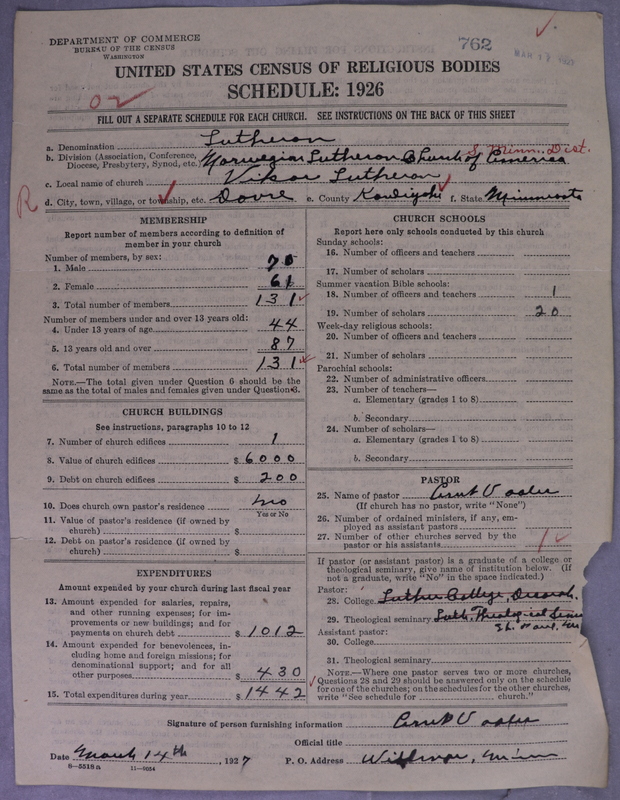 DEPARTMENT OF COMMERCE
BUREAU OF THE CENSUS
WASHINGTON
762
UNITED STATES CENSUS OF RELIGIOUS BODIES
SCHEDULE: 1926
FILL OUT A SEPARATE SCHEDULE FOR EACH CHURCH. SEE INSTRUCTIONS ON THE BACK OF THIS SHEET
a. Denomination Lutheran
b. Division (Association, Conference, Diocese, Presbytery, Synod, etc.) Norwegian Lutheran Church of America S. Minn. Dist.
c. Local name of church Vikor Lutheran
d. City, town, village, or township, etc. Dovre e. County Kandiyohi f. State Minnesota
R
MEMBERSHIP
Report number of members according to definition of
member in your church
Number of members, by sex:
1. Male 70
2. Female 61
3. Total number of members 131
Number of members under and over 13 years old:
4. Under 13 years of age 44
5. 13 years old and over 87
6. Total number of members 131
NOTE.—The total given under Question 6 should be the
same as the total of males and females given under Question 3.
CHURCH BUILDINGS
See instructions, paragraphs 10 to 12
7. Number of church edifices 1
8. Value of church edifices $6000
9. Debt on church edifices $200
10. Does church own pastor's residence No
Yes or No
11. Value of pastor's residence (if owned by
church) $
12. Debt on pastor's residence (if owned by
church) $
EXPENDITURES
Amount expended by your church during last fiscal year
13. Amount expended for salaries, repairs,
and other running expenses; for im-
provements or new buildings; and for
payments on church debt $1012
14. Amount expended for benevolences, in-
cluding home and foreign missions; for
denominational support; and for all
other purposes $430
15. Total expenditures during year $1442
CHURCH SCHOOLS
Report here only schools conducted by this church
Sunday schools:
16. Number of officers and teachers
17. Number of scholars
Summer vacation Bible schools:
18. Number of officers and teachers 1
19. Number of scholars 20
Week-day religious schools:
20. Number of officers and teachers
21. Number of scholars
Parochial schools:
22. Number of administrative officers
23. Number of teachers—
a. Elementary (grades 1 to 8)
b. Secondary
24. Number of scholars—
a. Elementary (grades 1 to 8)
b. Secondary
PASTOR
25. Name of pastor
(If church has no pastor, write "None")
26. Number of ordained ministers, if any, em-
ployed as assistant pastors
27. Number of other churches served by the
pastor or his assistants 1
If pastor (or assistant pastor) is a graduate of a college or
theological seminary, give name of institution below. (If
not a graduate, write "No" in the space indicated.)
Pastor:
28. College Luther College, Decorah.
29. Theological seminary Luth. Theological
Assistant pastor:
30. College
31. Theological seminary
NOTE.—Where one pastor serves two or more churches,
Questions 28 and 29 should be answered only on the schedule
for one of the churches; on the schedules for the other churches,
write "See schedule for church."
Signature of person furnishing information
Official title
Date March 14th, 1927 P. O. Address Willmar, Minn
8—5518a 11—9054